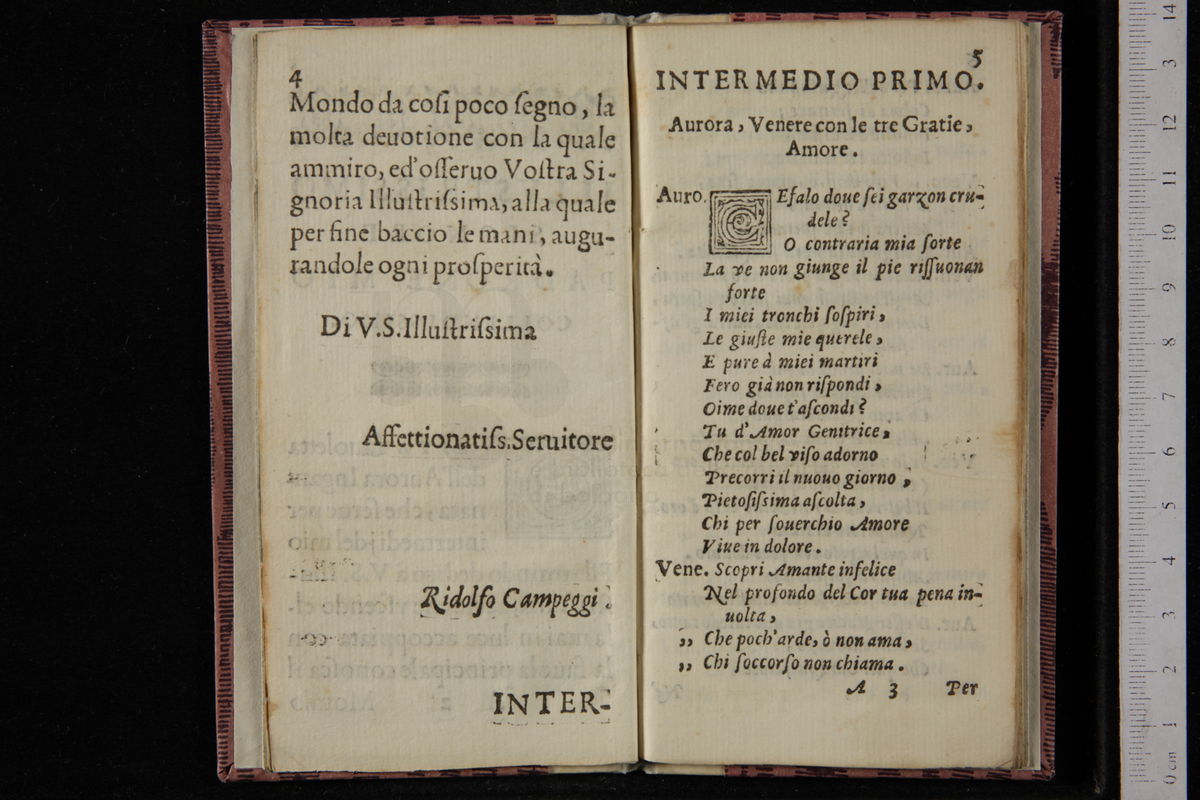 4
Mondo da coſi poco ſegno, la
molta deuotione con la quale
ammiro, ed'oſſeruo Voſtra Si-
gnoria Illuſtriſsima, alla quale
per fine baccio le mani, augu-
randole ogni proſperità.
Di V.S.Illuſtriſsima
Affettionatiſs.Seruitore
Ridolfo Campeggi.
INTER-
5
INTERMEDIO PRIMO.
Aurora, Venere con le tre Gratie,
Amore.
Auro. CEfalo doue ſei garzon cru-
dele?
O contraria mia ſorte
La ve non giunge il pie riſſuonan
forte
I miei tronchi ſoſpiri,
Le giuſte mie querele,
E pure à miei martiri
Fero già non riſpondi,
Oime doue t'aſcondi?
Tu d'Amor Genitrice,
Che col bel viſo adorno
Precorri il nuouo giorno,
Pietoſiſsima aſcolta,
Chi per ſouerchio Amore
Viue in dolore.
Vene. Scopri Amante infelice
Nel profondo del Cor tua pena in-
uolta,
,, Che poch'arde, ò non ama,
,, Chi ſoccorſo non chiama.
A 3 Per
0 cm 1 2 3 4 5 6 7 8 9 10 11 12 3 14